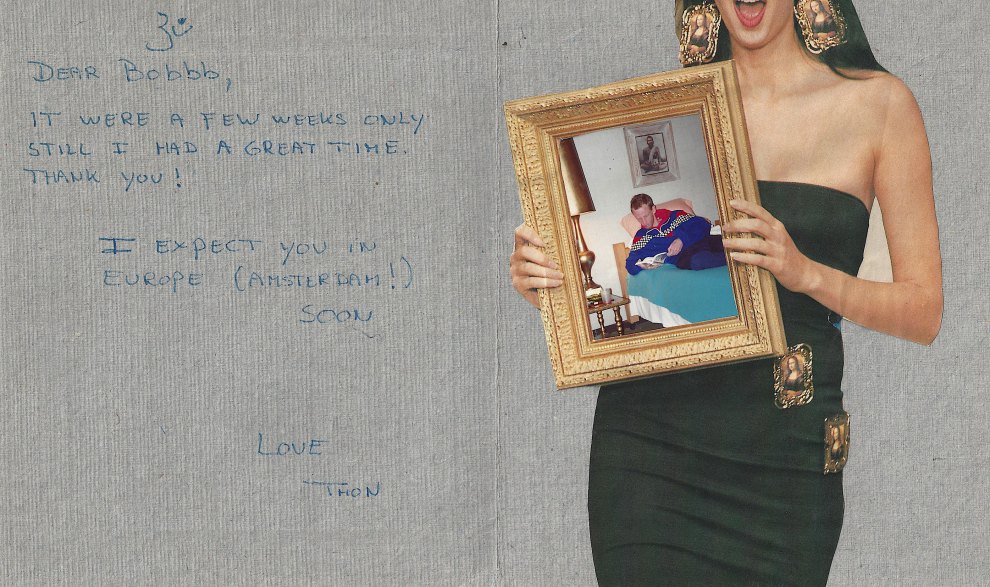 DEAR BOBBB,
IT WERE A FEW WEEKS ONLY
STILL I HAD A GREAT TIME.
THANK YOU!
I EXPECT YOU IN
EUROPE (AMSTERDAM!)
SOON
LOVE
THON